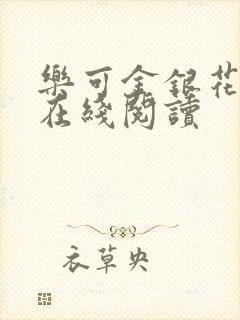 樂可金銀花
在綫閱讀
衣草央